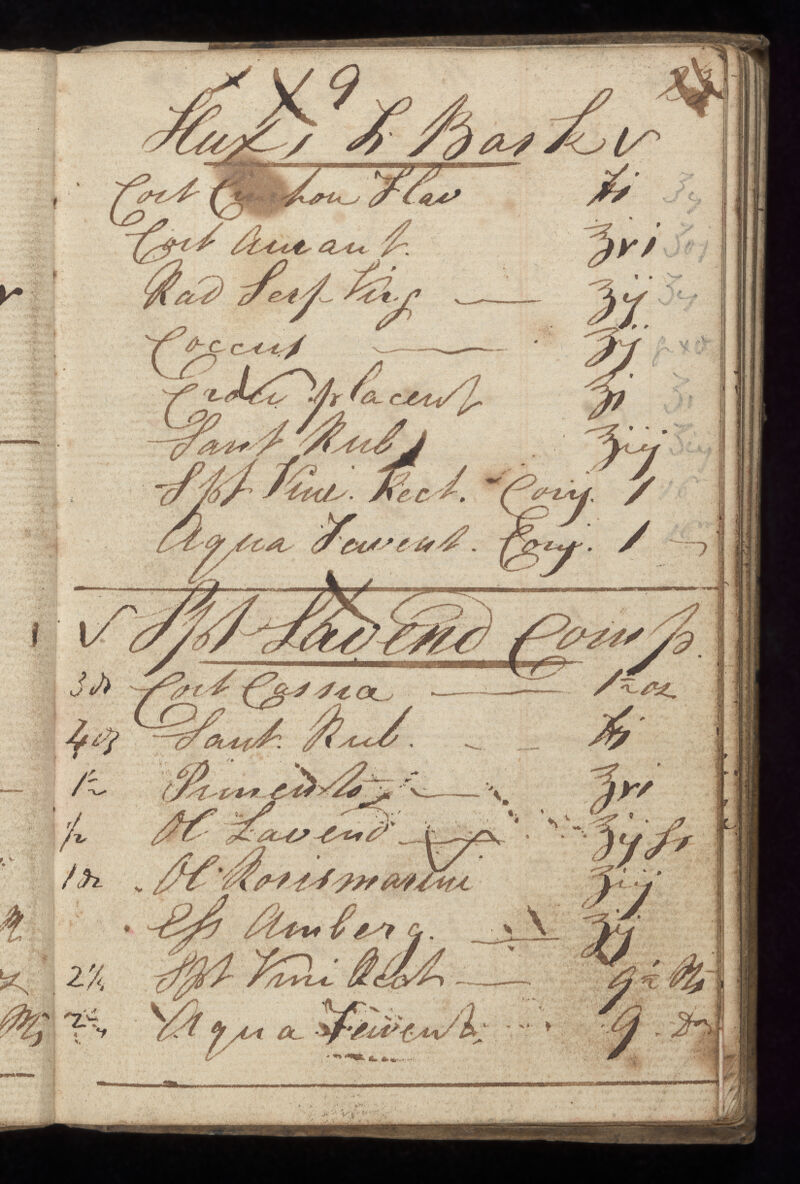 9
Hux,s Tr Bark
Cort Cinchon Flav ℔i ʒij
Cort Aurant. ℥vi
Rad Serp Virg — ʒij ʒij
Coccus — ʒij
Croci placent ʒi ʒi
Sant Rub ʒiij ʒiij
Spt Vini. Rect. Conj. 1 16
Aqua Fervent. Conj. 1 16
Spt Lavend Comp.
3 oz Cort Cassia — 1½ oz
4 oz Sant. Rub. ℔i
1½ Pimento — ℥vi
½ Ol Lavend — ʒij ſs
1 oz Ol Rorismarini ʒiij
Ess Amberg. — ʒij
Spt Vini Rect — 9½ Pts
Aqua Fervent. 9 Do